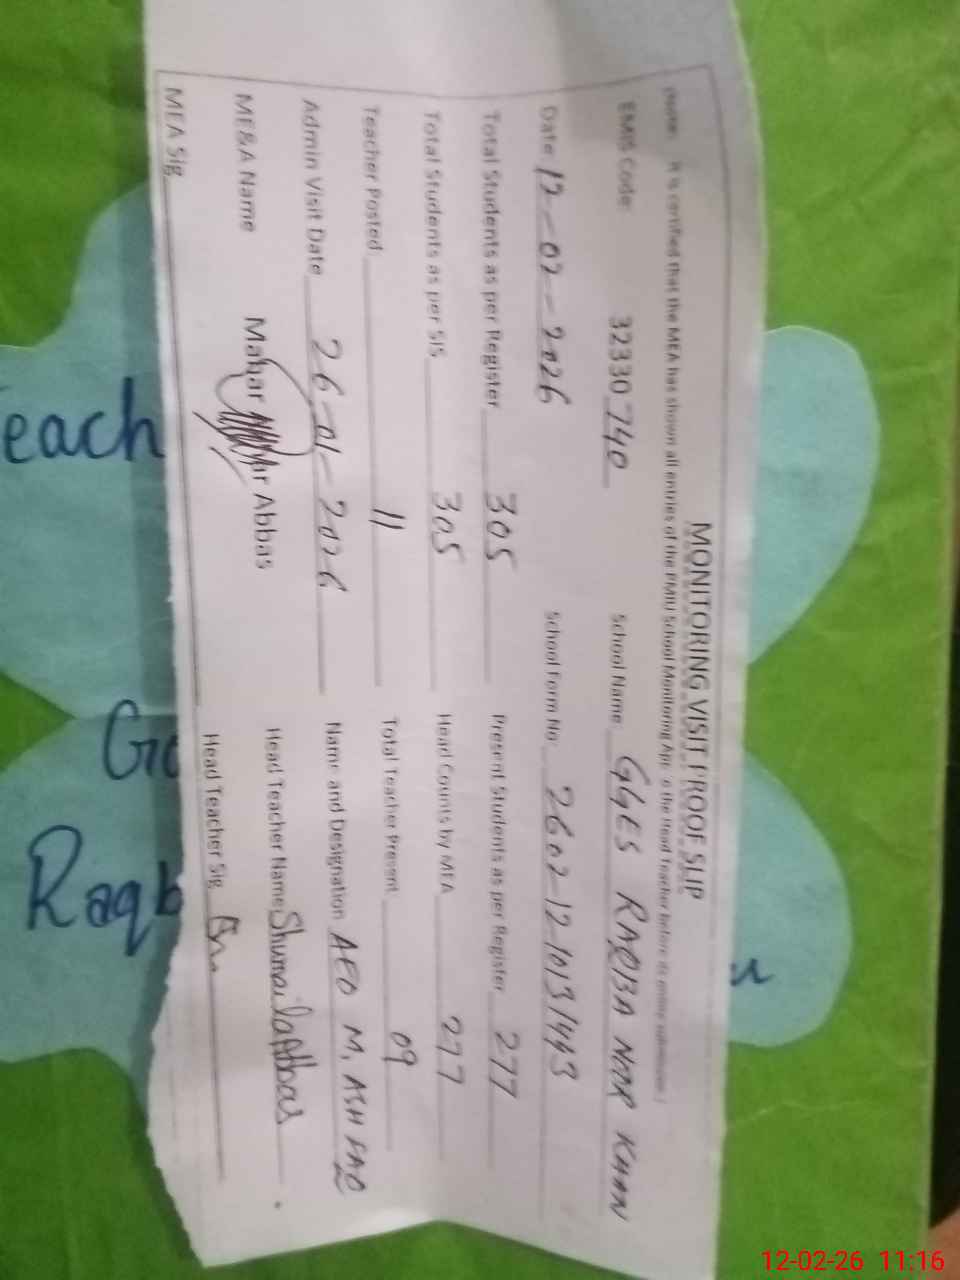 MONITORING VISIT PROOF SLIP
Note: It is certified that the MEA has shown all entries of the PMIU School Monitoring App to the Head Teacher before its online submission
EMIS Code: 32330740 School Name: GGES RAQBA NOOR KHAN
Date: 12-02-2026 School Form No: 2602-12-10131443
Total Students as per Register 305 Present Students as per Register 277
Total Students as per SIS 305 Head Counts by MEA 277
Teacher Posted 11 Total Teacher Present 09
Admin Visit Date 26-01-2026 Name and Designation AEO M. ASHFAQ
ME&A Name Mahar Abbas Head Teacher Name Shumaila Abbas
MEA Sig Head Teacher Sig
Teach
Raqb
12-02-26 11:16